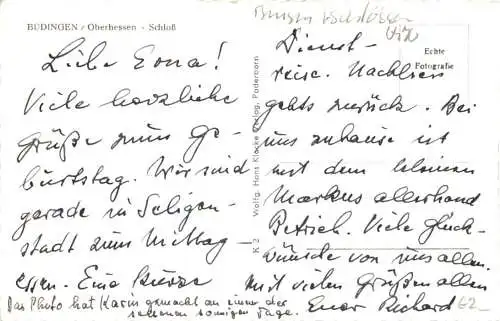 BÜDINGEN / Oberhessen - Schloß
Liebe Erna!
Viele herzliche
Grüße zum Ge-
burtstag. Wir sind
gerade in Seligen-
stadt zum Mittag
essen. Eine kurze
Dienst-
reise. Nachher
gehts zurück. Bei
uns zuhause ist
mit dem kleinen
Markus allerhand
Betrieb. Viele Glück-
wünsche von uns allen.
Mit vielen Grüßen allen
Euer Richard
Das Photo hat Karin gemacht an einem der
seltenen sonnigen Tage.
Echte
Fotografie
K 2 Wolfg. Hans Klocke Verlag, Paderborn
62-